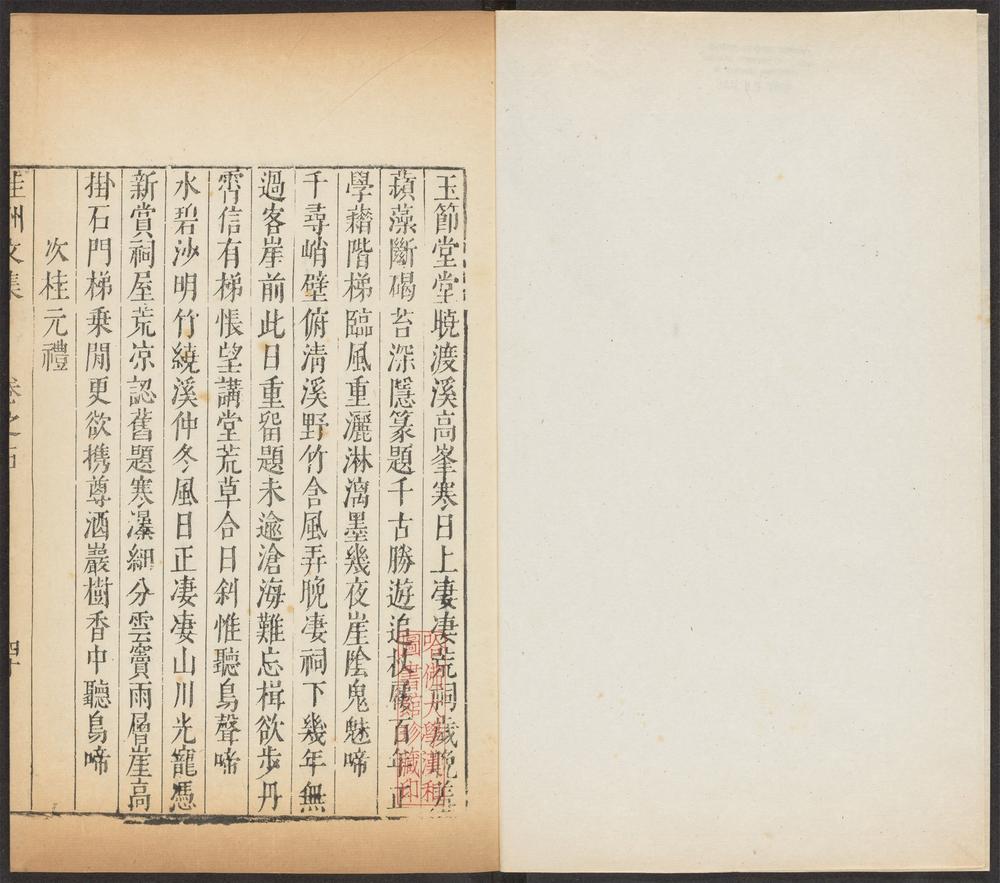 玉節堂堂曉渡溪高峯寒日上凄凄荒祠歲晚羞
蘋藻斷碣苔深隱篆題千古勝遊追杖屨百年正
學藉階梯臨風重灑淋漓墨幾夜崖陰鬼魅啼
千尋峭壁俯清溪野竹含風弄晚凄祠下幾年無
過客崖前此日重留題未逾滄海難忘楫欲步丹
霄信有梯悵望講堂荒草合日斜惟聽鳥聲啼
水碧沙明竹繞溪仲冬風日正凄凄山川光寵憑
新賞祠屋荒凉認舊題寒瀑細分雲竇雨層崖高
掛石門梯乗閒更欲携尊酒巖樹香中聽鳥啼
次桂元禮
桂洲文集 卷之 四十
哈佛大學漢和
圖書館珍藏印